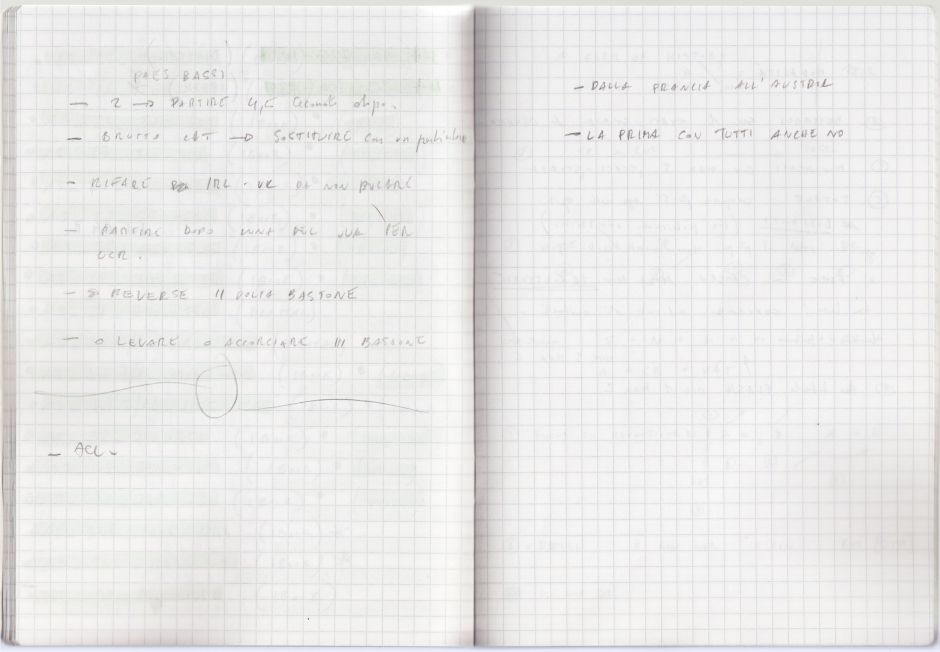 PAES BASSI
- 2 → PARTIRE 4,5 secondi dopo.
- BRUTTO → SOSTITUIRE con un particolare
- RIFARE IRL - UK DA NON BUCARE
- PARTIRE DOPO UNA DEL PER
UCR.
- REVERSE II VOLTA BASTONE
- O LEVARE O ACCORCIARE III BASTONE
- ACC.
- DALLA FRANCIA ALL'AUSTRIA
- LA PRIMA CON TUTTI ANCHE NO